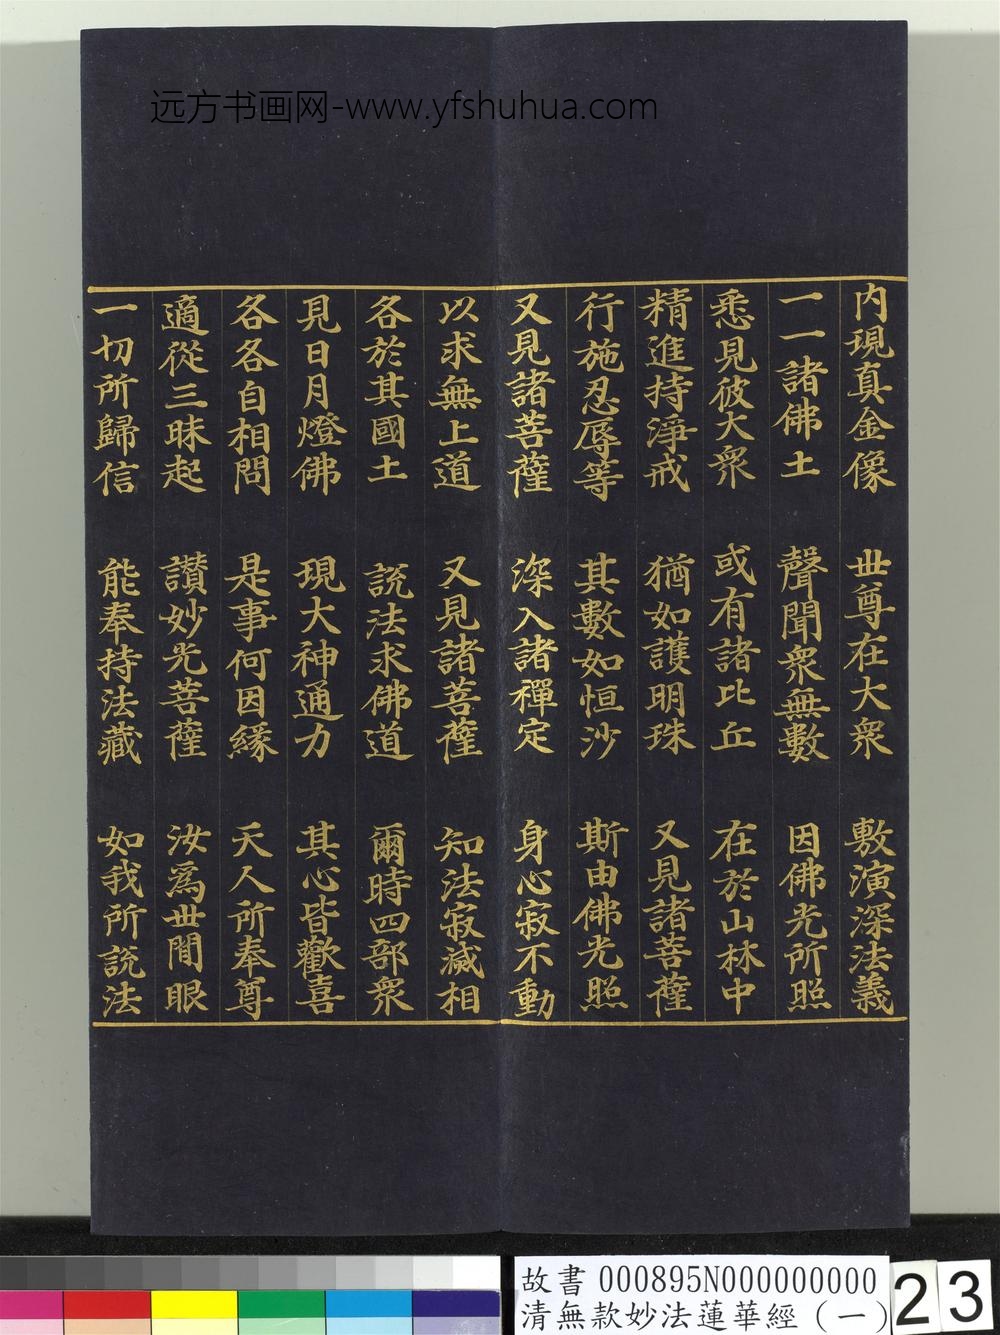 远方书画网-www.yfshuhua.com
内現真金像 世尊在大衆 敷演深法義
一一諸佛土 聲聞衆無數 因佛光所照
悉見彼大衆 或有諸比丘 在於山林中
精進持淨戒 猶如護明珠 又見諸菩薩
行施忍辱等 其數如恒沙 斯由佛光照
又見諸菩薩 深入諸禪定 身心寂不動
以求無上道 又見諸菩薩 知法寂滅相
各於其國土 説法求佛道 爾時四部衆
見日月燈佛 現大神通力 其心皆歡喜
各各自相問 是事何因緣 天人所奉尊
適從三昧起 讚妙光菩薩 汝爲世間眼
一切所歸信 能奉持法藏 如我所説法
故書 000895N000000000
清無款妙法蓮華經（一）
23